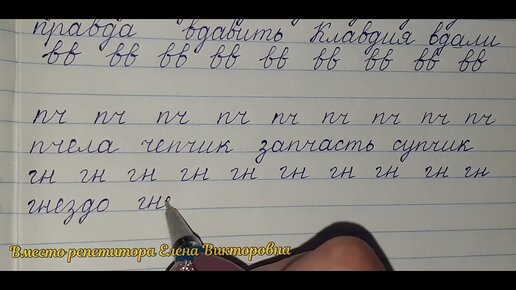 правда вдавить Клавдия вдали
вв вв вв вв вв вв вв вв вв
пч пч пч пч пч пч пч пч пч
пчела чепчик запчасть супчик
гн гн гн гн гн гн гн гн гн гн
гнездо гне
Вместо репетитора Елена Викторовна